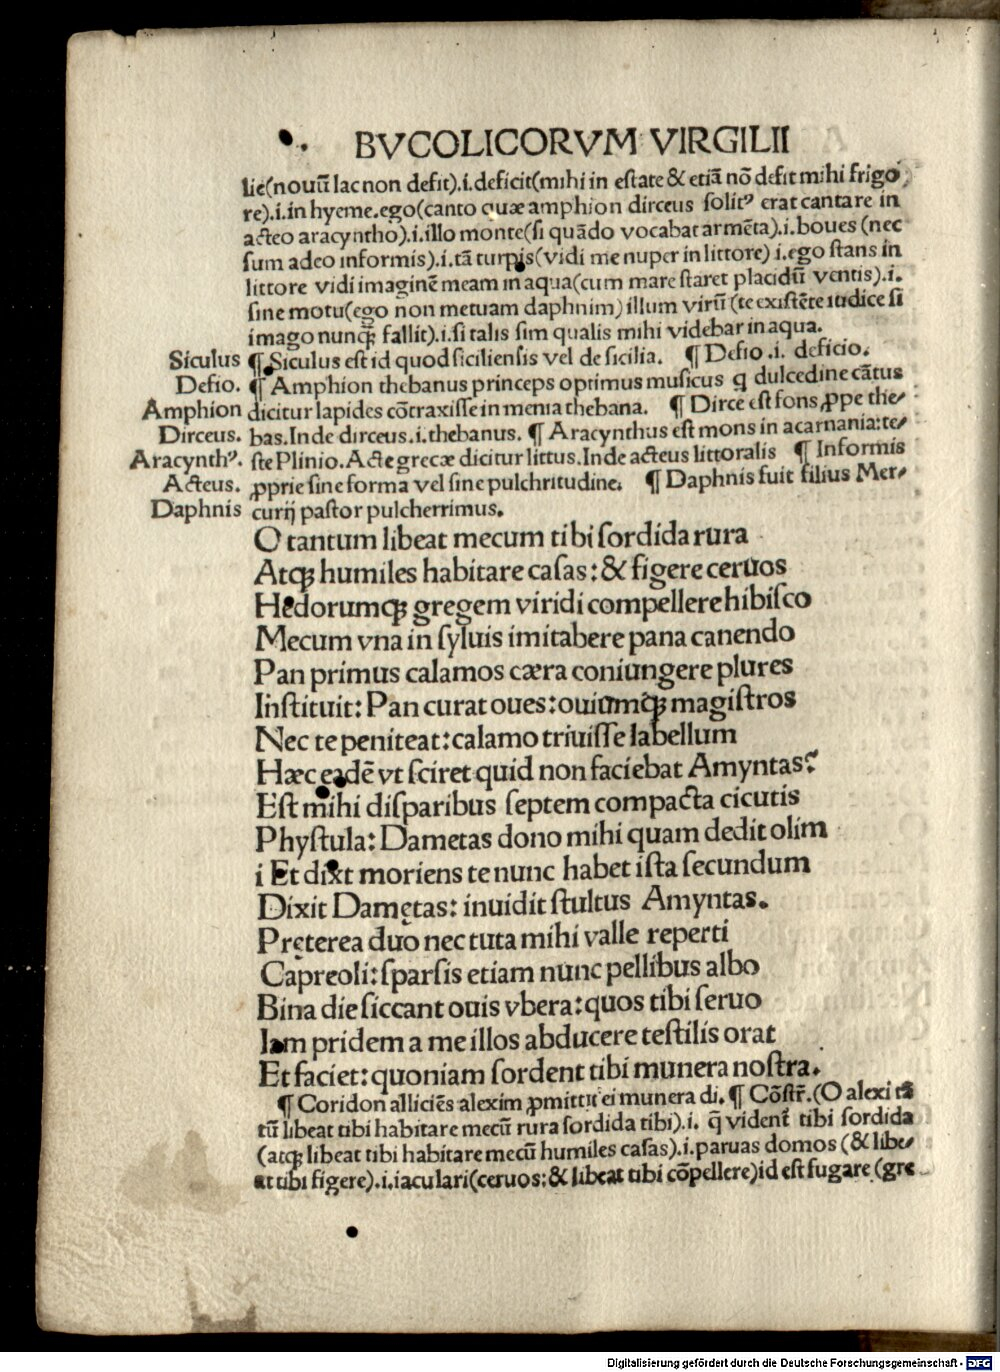 BVCOLICORVM VIRGILII
lie(nouū lac non defit).i.deficit(mihi in eſtate & etiā nō defit mihi frigo
re).i.in hyeme.ego(canto quæ amphion dirceus ſolitꝰ erat cantare in
acteo aracyntho).i.illo monte(ſi quādo vocabat armēta).i.boues (nec
ſum adeo informis).i.tā turpis(vidi me nuper in littore) i.ego ſtans in
littore vidi imaginē meam in aqua(cum mare ſtaret placidū ventis).i.
ſine motu(ego non metuam daphnim) illum virū (te exiſtēte iudice ſi
imago nunq̄ȝ fallit).i.ſi talis ſim qualis mihi videbar in aqua.
Siculus ¶ Siculus eſt id quod ſicilienſis vel de ſicilia. ¶ Defio .i. deficio.
Defio. ¶ Amphion thebanus princeps optimus muſicus q dulcedine cātus
Amphion dicitur lapides cōtraxiſſe in menia thebana. ¶ Dirce eſt fons ꝓpe the⸗
Dirceus. bas.Inde dirceus.i.thebanus. ¶ Aracynthus eſt mons in acarnania:te⸗
Aracynthꝰ. ſte Plinio.Acte grecæ dicitur littus.Inde acteus littoralis ¶ Informis
Acteus. ꝓprie ſine forma vel ſine pulchritudine. ¶ Daphnis fuit filius Mer⸗
Daphnis curij paſtor pulcherrimus.
O tantum libeat mecum tibi ſordida rura
Atqȝ humiles habitare caſas: & figere ceruos
Hędorumqȝ gregem viridi compellere hibiſco
Mecum vna in ſyluis imitabere pana canendo
Pan primus calamos cæra coniungere plures
Inſtituit: Pan curat oues: ouiumqȝ magiſtros
Nec te peniteat: calamo triuiſſe labellum
Hæc eadē vt ſciret quid non faciebat Amyntas?
Eſt mihi diſparibus ſeptem compacta cicutis
Phyſtula: Dametas dono mihi quam dedit olim
i Et dixt moriens te nunc habet iſta ſecundum
Dixit Damętas: inuidit ſtultus Amyntas.
Pręterea duo nec tuta mihi valle reperti
Capreoli: ſparſis etiam nunc pellibus albo
Bina die ſiccant ouis vbera: quos tibi ſeruo
Iam pridem a me illos abducere teſtilis orat
Et faciet: quoniam ſordent tibi munera noſtra.
¶ Coridon alliciēs alexim ꝓmittit ei munera di. ¶ Cōſtr̄.(O alexi tā
tū libeat tibi habitare mecū rura ſordida tibi).i. q̄ vident̄ tibi ſordida
(atqȝ libeat tibi habitare mecū humiles caſas).i.paruas domos (& libe⸗
at tibi figere).i.iaculari(ceruos:& libeat tibi cōpellere)id eſt fugare (gre
Digitalisierung gefördert durch die Deutsche Forschungsgemeinschaft - DFG